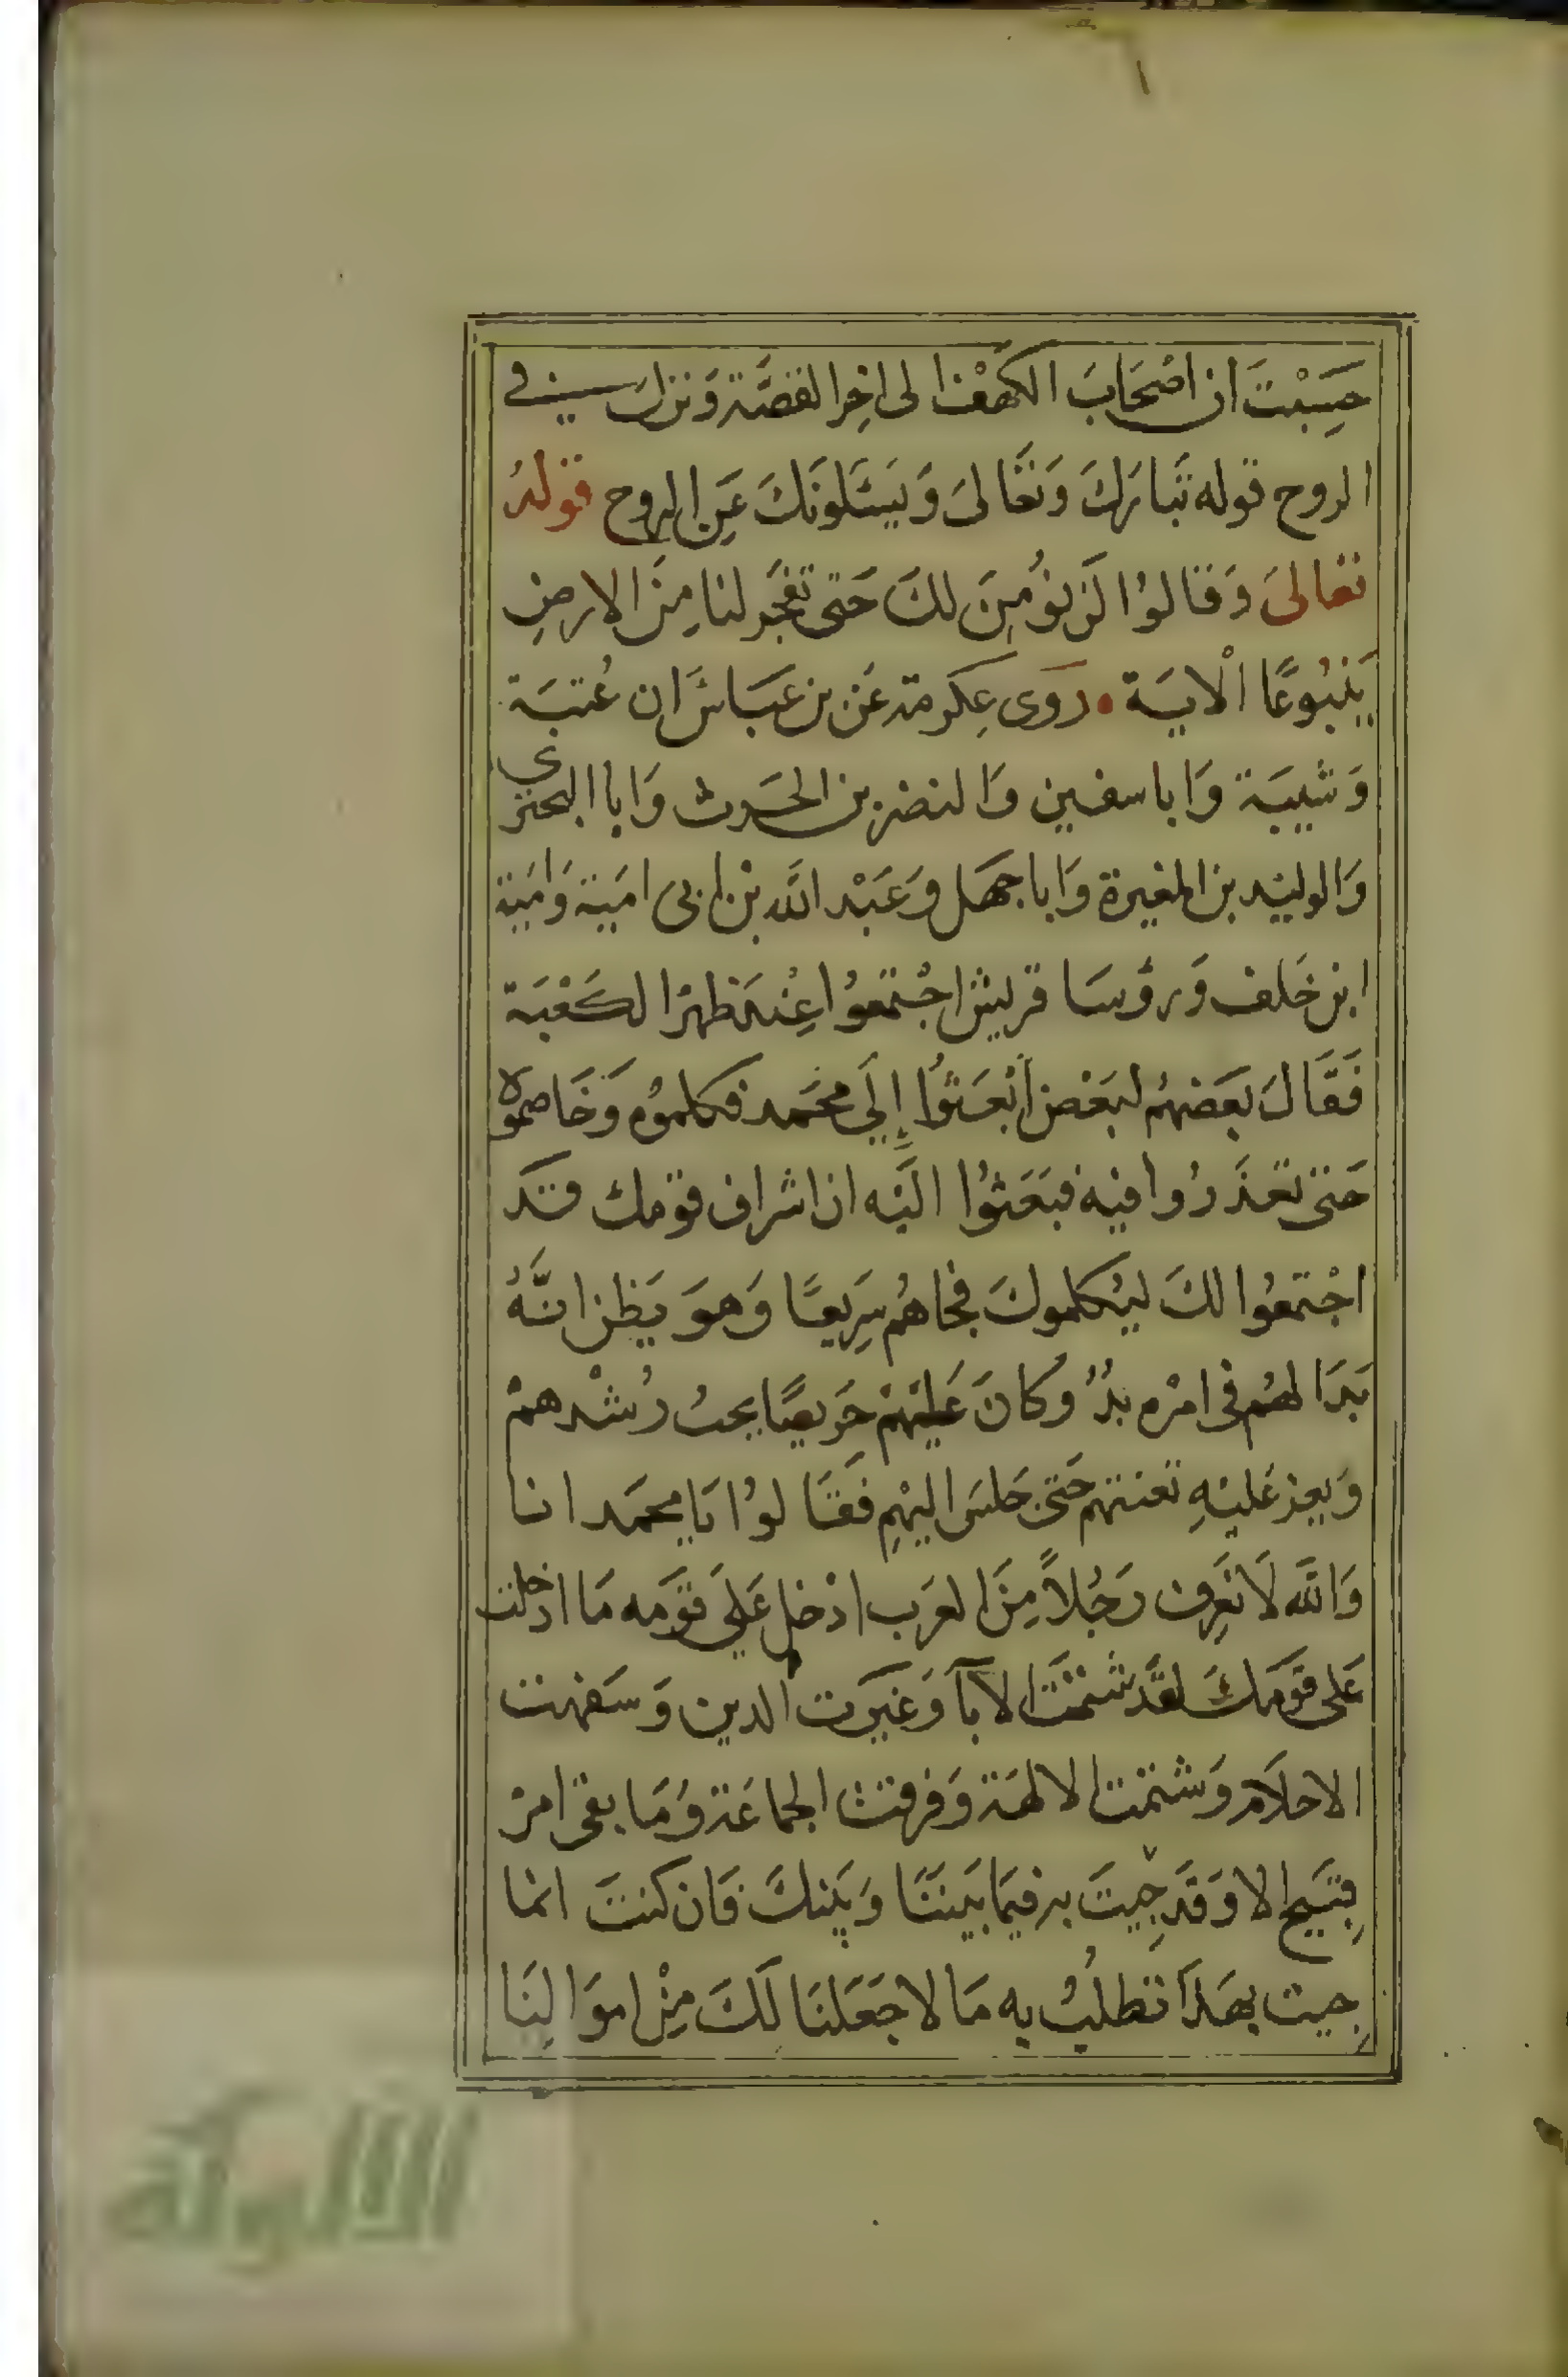 ١
حَسِبْتَ ان اصْحَابَ الكهْف الى اخِر القصَّة وَنزلت في
الروح قوله تَبارَكَ وَتعَالىَ وَيَسْئَلوُنَكَ عَنِ الرُوح قولهُ
تعَالىَ وَقالوُا لَن نؤُمِنَ لكَ حَتى تفْجُر لنا مِنَ الارضِ
يَنبُوعًا الْايَة • رَوَى عِكرمة عَن بن عَبَاسٍ ان عُتبَة
وَشَيبَة وَابا سفين وَالنضر بن الحَرث وَابا البحتري
وَالوليْد بن المغيرة وَابا جهَل وَعَبْد الله بن ابى اميَة وَاميَة
ابن خَلف وَرؤسَا قريش اجْتمَعوُا عِنْد ظهرْ الكَعْبَة
فَقَالَ بَعَضهُم لبَعْض ابْعَثوُا إِلَي محَمد فكلموُه وَخَاصموه
حَتى تعْذَرُوا فيْه فبَعَثوُا اليَه ان اشراف قوْمك قد
اجْتمعُوا لكَ ليُكلموكَ فجاهُم سَرِيعًا وَهوَ يَظن انَّهُ
بَدَا لهُم فى امْره بدُُ وكانَ عَليْهمْ حَريصًا يحبُ رُشْدهمْ
وَيعز عَليْهِ تعنتهم حَتى جَلسَ اليْهِم فَقَالوُا يَا محمَد انا
وَالله لَا نَعرِف رَجُلاً مِنَ العَرب ادْخل عَلَي قوْمه مَا ادخلت
عَلى قوْمكَ لقَد شتمْتَ الآبآ وَغيَرت الدين وَسَفهت
الاحلَام وَشتمْت الالهَة وَفرقت الجماعَة وَمَا بقى امرْ
قبَيح الا وَقدَ جِيتَ به فيمَا بَينَنَا وَبَينكَ فَان كنتَ انمَا
جِيت بهَذَا تطلبُ به مَالا جَعَلنَا لَكَ مِنْ اموَالنِا
الألوكة